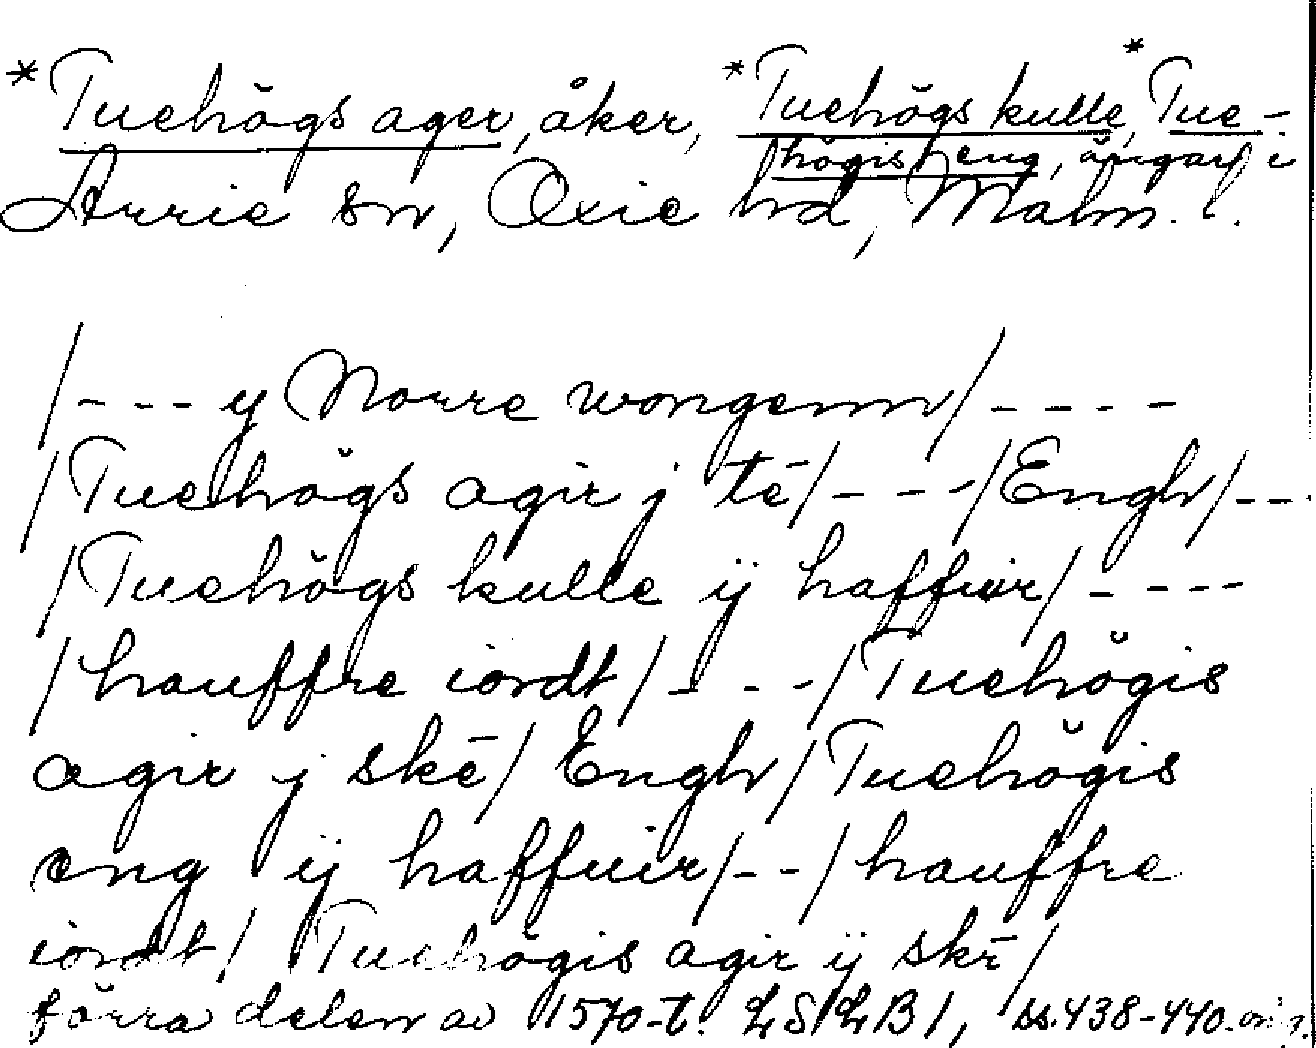 *Tuehögs ager, åker, *Tuehögs kulle, *Tue-
högis eng, ängar i
Arrie sn, Oxie hd, Malm. l.
/--- y Norre wongenn/----
/Tuehögs agir j tē/---/Engh/---
/Tuehögs kulle ÿ haffuir/----
/hauffre iordt/---/Tuehögis
agir j skē/Engh/Tuehögis
eng ÿ haffuir/--/hauffre
iordt/ Tuehögis agir ÿ skr̄/
förra delen av 1570-t. LSLB 1, ss. 438-440.